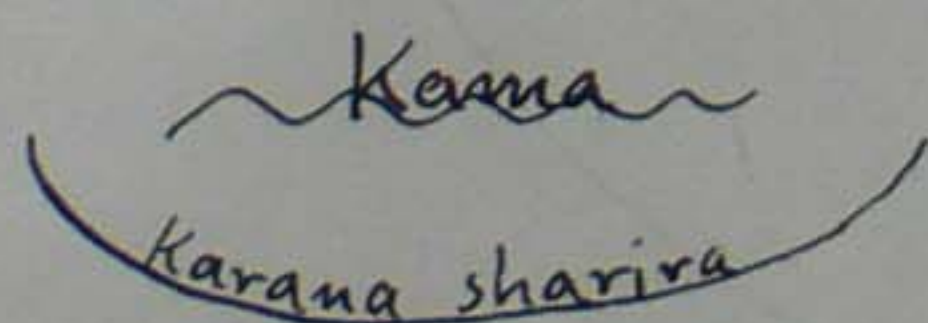 Kama
Karana sharira